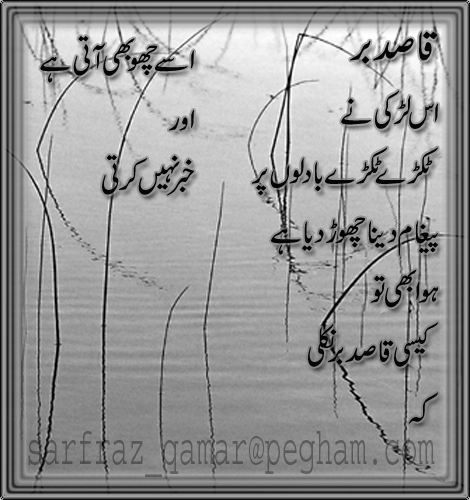 قاصد بر
اس لڑکی نے
ٹکڑے ٹکڑے بادلوں پر
پیغام دینا چھوڑ دیا ہے
ہوا بھی تو
کیسی قاصد بر نکلی
کہ
اسے چھو بھی آتی ہے
اور
خبر نہیں کرتی
sarfraz_qamar@pegham.com